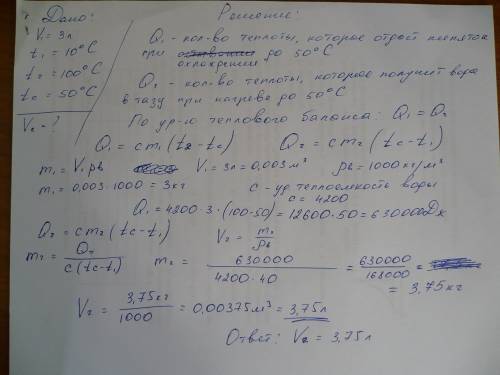 Дано:
V₁ = 3л
t₁ = 10°C
t₂ = 100°C
tc = 50°C
V₂ - ?
Решение:
Q₁ - кол-во теплоты, которое отдаст кипяток
при охлаждении до 50°C
Q₂ - кол-во теплоты, которое получит вода
в тазу при нагреве до 50°C
По ур-ю теплового баланса: Q₁ = Q₂
Q₁ = cm₁(t₂ - tc) Q₂ = cm₂(tc - t₁)
m₁ = V₁ρв V₁ = 3л = 0,003 м³ ρв = 1000 кг/м³
m₁ = 0,003 · 1000 = 3 кг c - уд теплоемкость воды
c = 4200
Q₁ = 4200 · 3 · (100-50) = 12600 · 50 = 630000 Дж
Q₂ = cm₂(tc - t₁) V₂ = m₂/ρв
m₂ = Q₁/c(tc - t₁) m₂ = 630000/4200 · 40 = 630000/168000 =
= 3,75 кг
V₂ = 3,75 кг/1000 = 0,00375 м³ = 3,75 л
Ответ: V₂ = 3,75 л